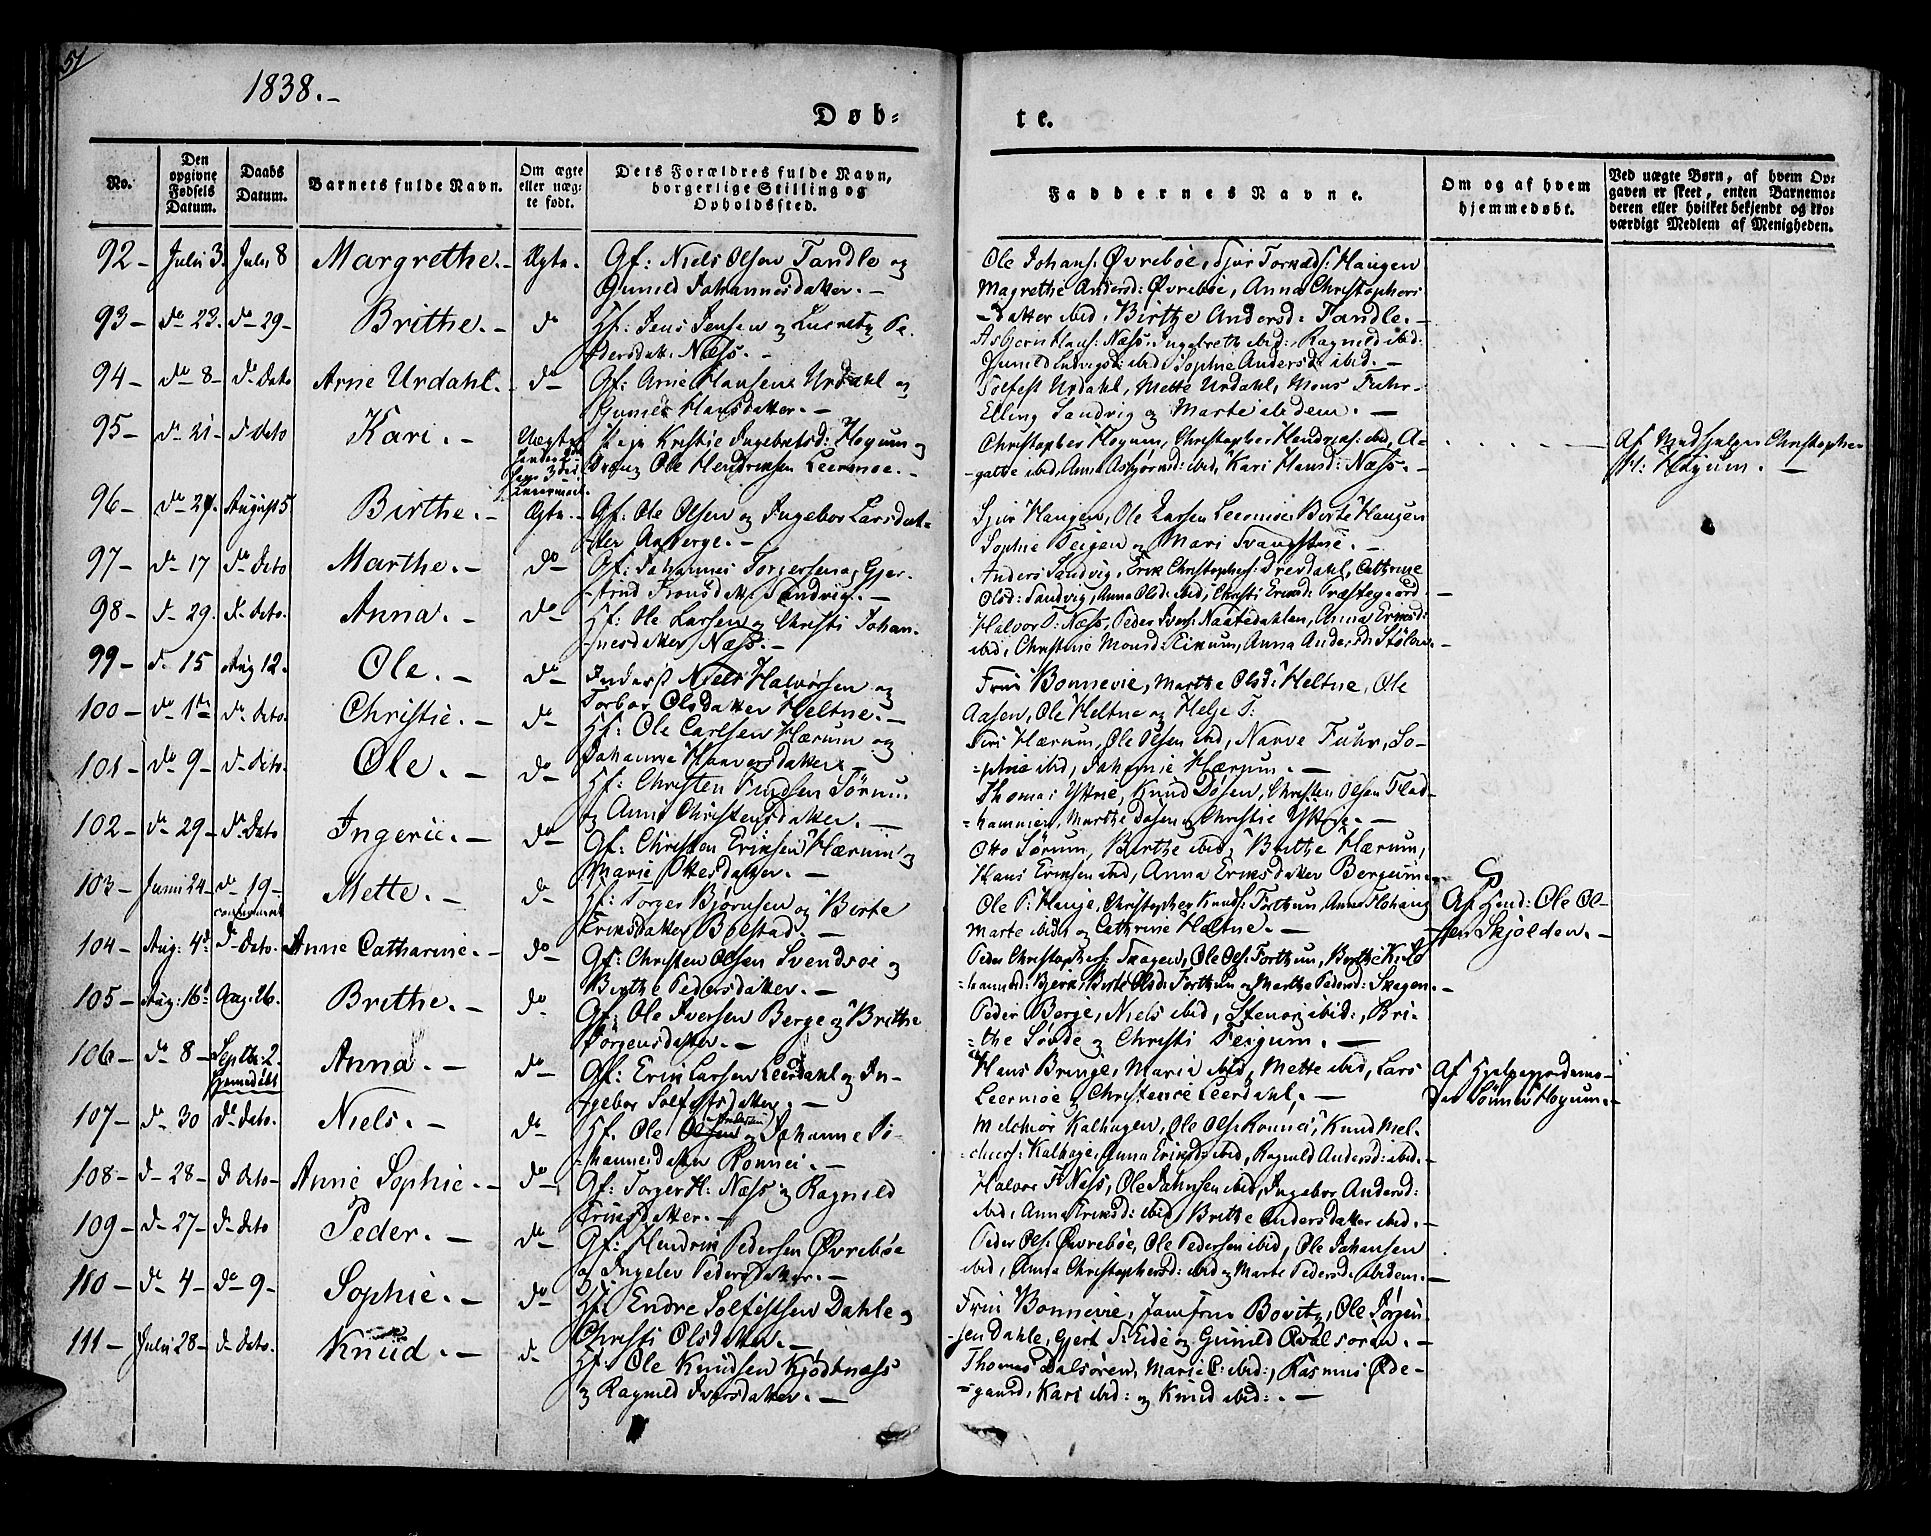 51
1838.-
Døb=
te.
No.
Den opgivne Fødsels Datum.
Daabs Datum.
Barnets fulde Navn.
Om ægte eller uæg= te født.
Dets Forældres fulde Navn, borgerlige Stilling og Opholdssted.
Faddernes Navne.
Om og af hvem hjemmedøbt.
Ved uægte Børn, af hvem Op= gaven er skeet, enten Barnemo= deren eller hvilket bekjendt og tro= værdigt Medlem af Menigheden.
92 - Juli 3. Juli 8 Margrethe. - Ægte. - Gf: Niels Olsen Fandle og
Gunild Johannesdatter. -
Ole Johans: Øvrebøe, Sjur Haugen
Magrethe Andersd: Øvrebøe, Anna Christophers
datter ibid, Birthe Andersd: Fandle. -
93 - do 23. do 29 - Brithe. - do Hf: Jens Jensen og Pe-
dersdatt: Næss. -
Asbjørn Hans: Næss, ibid: Ragnild ibid:
ibid Sophie Andersd: ibid. -
94 - do 8 - do dato Arne Urdahl. - do Gf: Arne Hansen Urdahl og
Hansdatter. -
Urdahl, Mette Urdahl, Mons Fuhr-
Elling Sandvig og Marte ibidem. -
95 - do 21 - d dato Kari. - Uægte
Pige Kristie Ingebretsd: Høyum og
Ole Hendriksen Leermoe. -
Christopher Høyum, Christopher ibid, A-
gatte ibid, Anna Asbjørnsd: ibid, Kari Hansd: Næss. -
Af Medhjelper Christopher
Høyum. -
96 - do 27. August 5 Birthe. - Ægte. - Gf: Ole Olsen og Ingebor Larsdat-
ter -
Sjur Haugen, Ole Larsen Leermoe, Birte Haugen
Sophie Teigen og Mari
97 - do 17 do dato Marthe. - do Gf: Johannes Torgersen og Gjer-
trud datter Sandvig. -
Anders Sandvig, Erik Christophers: Drevdahl, Cathrine
Olsd: Sandvig, Anna Olsd: ibid, Christi Eriksd: Præstegaard -
98 - d 29. do dato. Anna. - do Hf: Ole Larsen og Christi Johan-
nesdatter Næss. -
Halvor T: Næss, Peder Ivers: Anna Eriksd:
ibid, Christine Monsd: Anna Andersd: Stølen. -
99 - d. 15 Aug 12. Ole. - do Inderst Niels Halvorsen og
Torbor Olsdatter Heltne. -
Fru Bonnevie, Marthe Olsd: Heltne, Ole
Aasen, Ole Heltne og Helje T.
100 - do 1ste do dato. Christie. - do Hf: Ole Carlsen Hærum og
Johanne datter -
Hærum, Ole Olsen ibid, Narve Fuhr, So-
phie ibid, Johanne Hærum. -
101 - do 9 - do dato. Ole. - do Hf: Christen Sørum
og Anne Christensdatter. -
Thomas Yttrie, Knud Døsen, Christen Olsen Flad-
hammer, Marthe Døsen og Christie Yttrie. -
102 - do 29 - do dato Ingerie. - do Gf: Christen Eriksen Hærum og
Marie Ottesdatter. -
Otto Sørum, Birthe ibid, Brithe Hærum,
Hans Eriksen ibid, Anna Eriksdatter Bergum. -
103 - Juni 24 do 19 - Mette. - do Hf: Torger Bjørnsen og Birte
Eriksdatter Bolstad. -
Ole P: Hauge, Christopher Knuds: Forthun, Anna
Marte ibid og Cathrine Heltne. -
Af Ole Ol-
sen Skjolden. -
104 - Aug: 4de do dato. Anne Catharine. - do Gf: Christen Olsen Svendsøe og
Birthe Pedersdatter. -
Peder Christophers: Skagen, Ole Ols: Forthun, Berthe
Birte Olsd: Forthun og Marthe Pedersd: Skagen. -
105 - Aug: 16d Aug: 26. Brithe. - do. Gf: Ole Iversen Berge og Brithe
Jørgensdatter. -
Peder Berge, Niels ibid, Steno ibid:, Bri-
the Sønde og Christi Teigum. -
106 - do 8 - Septbr: 2. Anna. - do Gf: Erik Larsen Leerdahl og In-
gebor Solfestsdatter. -
Hjemedøbt
Hans Bringe, Marie ibid, Mette ibid, Lars
Leermoe og Christence Leerdahl, -
Af Hjelpejordemo-
der Høyum. -
107 - do 30 do dato. Niels. - do Hf. Ole Olsen Andersen og Johanne Jo-
hannesdatter Rønnei. -
Melchior Kalhagen, Ole Ols: Rønnei, Knud Mel-
chiors: Kalhage, Anna Eriksd: ibid, Ragnild Andersd: ibid. -
108 - d - 28 - do dato - Anne Sophie. - do Gf: Torger H: Næss og Ragnild
Eriksdatter. -
Halvor T Næss, Ole Johnsen ibid, Ingebor Andersd:
ibid, Anna Eriksd: ibid, Brithe Andersdatter ibid. -
109 - d - 27 - do dato Peder. - do Gf: Hendrik Pedersen Øvrebøe
og Ingelev Pedersdatter. -
Peder Ols: Øvrebøe, Ole Pedersen ibid, Ole Johansen
ibid, Anna Christophersd: ibid og Marte Pedersd: ibidem. -
110 - do - 4 - do 9 - Sophie. - do Hf: Endre Solfestsen Dahle og
Christi Olsdatter. -
Fru Bonnevie, Jomfrue Bovitz, Ole Jørgen-
sen Dahle, Gjert S: Eide og Gunild Qvalsoren. -
111 - Juli 28 - d dato. Knud. - d - Hf: Ole Knudsen Kjødtnæss
og Ragnild Iversdatter. -
Thomas Dalsøren, Marie C: ibid:, Rasmus Øde-
gaard, Kari ibid: og Knud ibid:. -